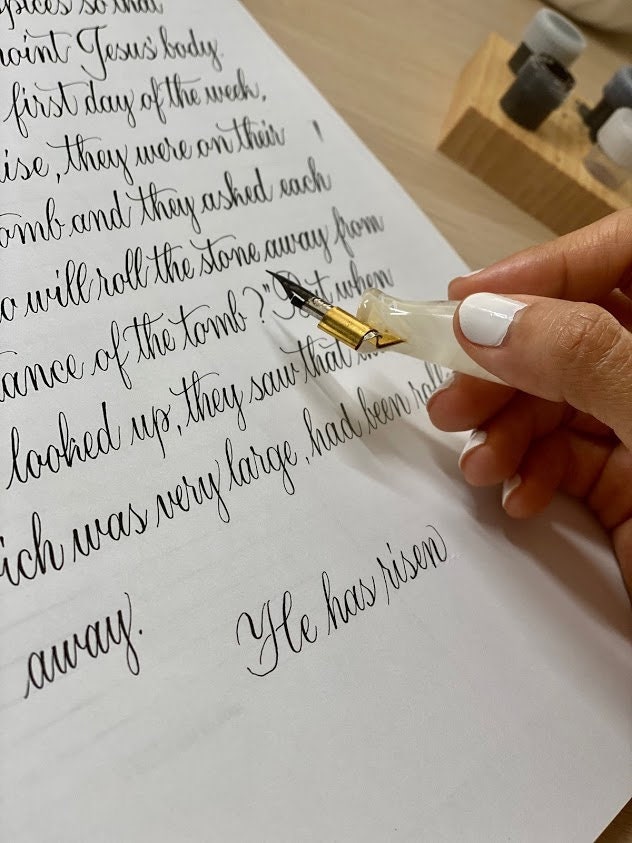 spices so that
noint Jesus' body.
first day of the week,
ise, they were on their
omb and they asked each
o will roll the stone away from
ance of the tomb?" But when
looked up, they saw that
ich was very large, had been roll
away. He has risen